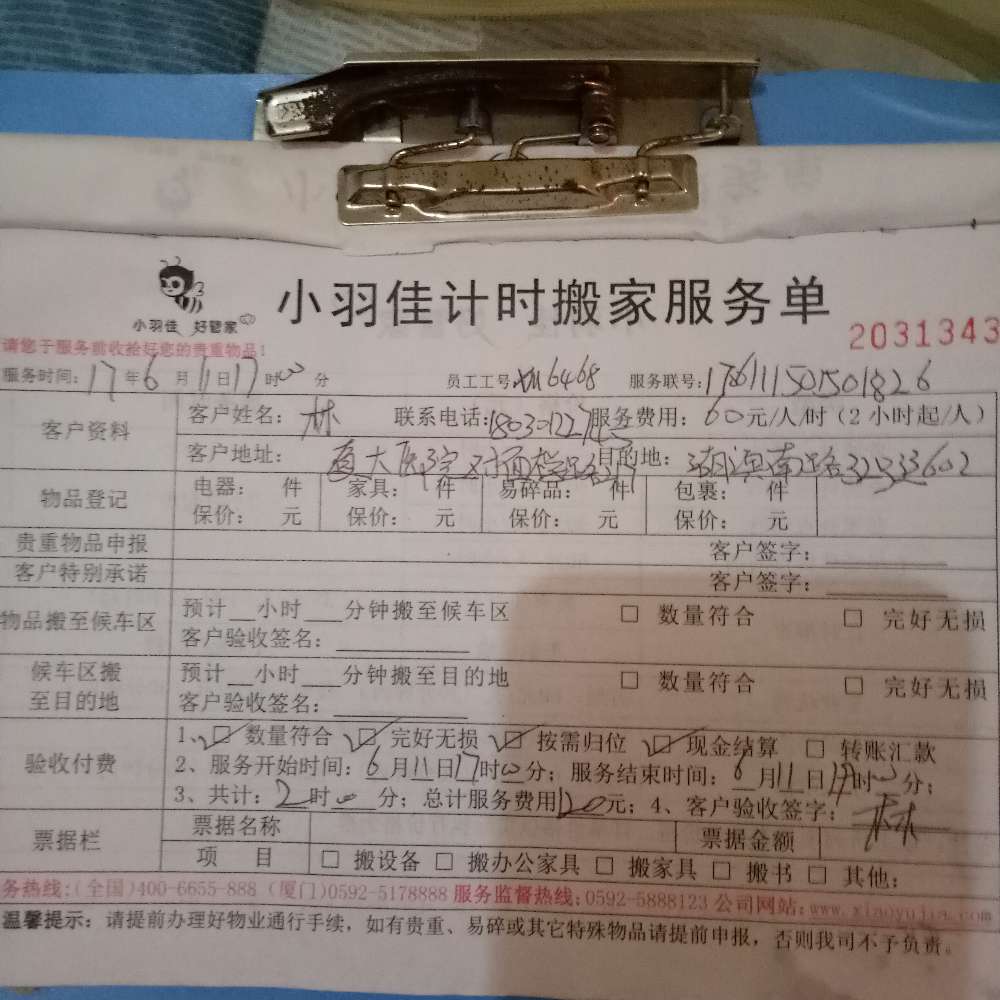 小羽佳 好管家
小羽佳计时搬家服务单
2031343
请您于服务前收拾好您的贵重物品！
服务时间：17年6月11日17时00分 员工工号：XM6468 服务联号：
客户资料 客户姓名：林 联系电话： 服务费用：60元/人/时（2小时起/人）
客户地址：厦大医院对面 目的地：湖滨南路
物品登记 电器： 件 家具： 件 易碎品： 件 包裹： 件
保价： 元 保价： 元 保价： 元 保价： 元
贵重物品申报 客户签字：
客户特别承诺 客户签字：
物品搬至候车区 预计__小时___分钟搬至候车区 □ 数量符合 □ 完好无损
客户验收签名：
候车区搬至目的地 预计__小时___分钟搬至目的地 □ 数量符合 □ 完好无损
客户验收签名：
验收付费 1、☑ 数量符合 ☑ 完好无损 ☑ 按需归位 ☑ 现金结算 □ 转账汇款
2、服务开始时间：6月11日17时00分；服务结束时间：6月11日 时00分；
3、共计：2时00分；总计服务费用120元；4、客户验收签字：林
票据栏 票据名称 票据金额
项 目 □ 搬设备 □ 搬办公家具 □ 搬家具 □ 搬书 □ 其他：
务热线：(全国)400-6655-888 (厦门)0592-5178888 服务监督热线：0592-5888123 公司网站：www.xiaoyujia.com
温馨提示：请提前办理好物业通行手续，如有贵重、易碎或其它特殊物品请提前申报，否则我司不予负责。